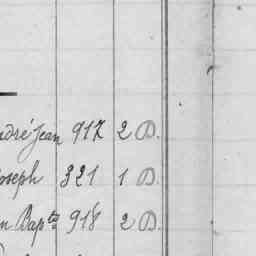 ndré Jean 917 2 D.
Joseph 321 1 D.
n Bapte 918 2 D.